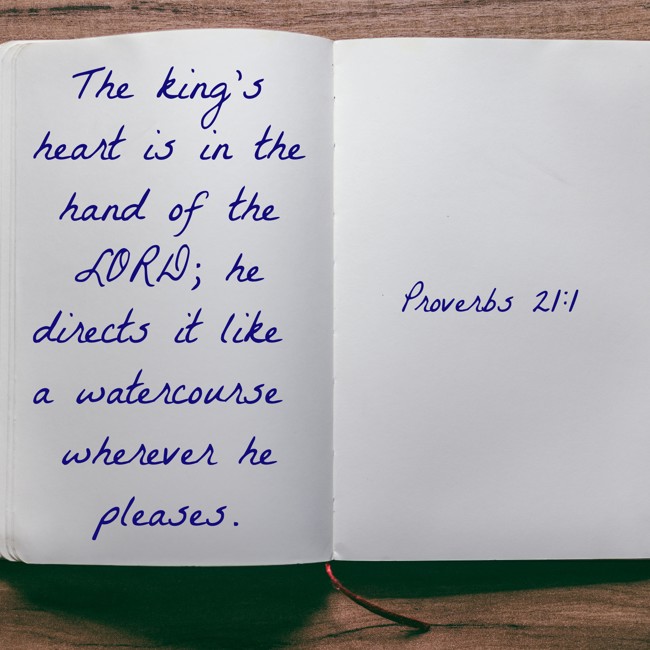 The king's
heart is in the
hand of the
LORD; he
directs it like
a watercourse
wherever he
pleases.
Proverbs 21:1